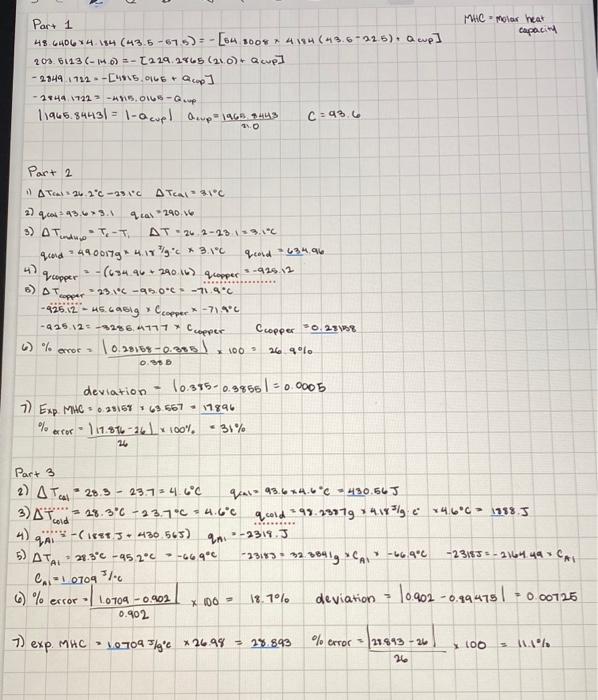 Part 1
MHC = molar heat capacity
48.6406 x 4.184 (43.5-57.5) = -[54.8008 x 4.184 (43.5-22.5) + qcup]
203.5123 (-14.0) = -[229.2865 (21.0) + qcup]
-2849.1722 = -[4815.0165 + qcup]
-2849.1722 = -4815.0165 - qcup
|1965.8443| = |-qcup| qcup = 1965.8443 / 21.0 C = 93.6
Part 2
1) ΔTcal = 26.2°C - 23.1°C ΔTcal = 3.1°C
2) qcal = 93.6 x 3.1 qcal = 290.16
3) ΔT = Tf - Ti ΔT = 26.2 - 23.1 = 3.1°C
qcold = 49.0017g x 4.18 J/g°C x 3.1°C qcold = 634.96
4) qcopper = -(634.96 + 290.16) qcopper = -925.12
5) ΔTcopper = 23.1°C - 95.0°C = -71.9°C
-925.12 = 45.6951g x Ccopper x -71.9°C
-925.12 = -3285.4777 x Ccopper Ccopper = 0.28158
6) % error = |0.28158 - 0.385| / 0.385 x 100 = 26.9%
deviation = |0.385 - 0.3855| = 0.0005
7) Exp. MHC = 0.28158 x 63.557 = 17.896
% error = |17.896 - 26| / 26 x 100% = 31%
Part 3
2) ΔTcal = 28.3 - 23.7 = 4.6°C qcal = 93.6 x 4.6°C = 430.56J
3) ΔTcold = 28.3°C - 23.7°C = 4.6°C qcold = 98.2387g x 4.18 J/g·c° x 4.6°C = 1888.J
4) qAl = -(1888.J + 430.56J) qAl = -2319.J
5) ΔTAl = 28.3°C - 95.2°C = -66.9°C -2318J = 32.3541g x CAl x -66.9°C -2318J = -2164.49 x CAl
CAl = 1.0709 J/°C
6) % error = |1.0709 - 0.902| / 0.902 x 100 = 18.7% deviation = |0.902 - 0.89475| = 0.00725
7) exp. MHC = 1.0709 J/g°c x 26.98 = 28.893 % error = |28.893 - 26| / 26 x 100 = 11.1%